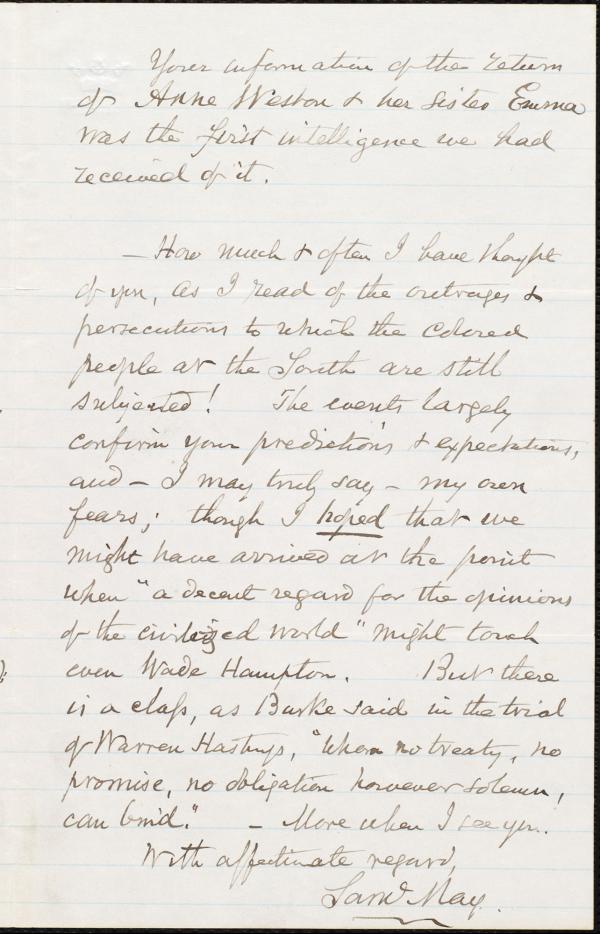 Your information of the return
of Anne Weston & her sister Emma
was the first intelligence we had
received of it.
— How much & often I have thought
of you, as I read of the outrages &
persecutions to which the colored
people at the South are still
subjected! The events largely
confirm your predictions & expectations,
and – I may truly say – my own
fears; though I hoped that we
might have arrived at the point
when "a decent regard for the opinions
of the civilized world" might touch
even Wade Hampton. But there
is a class, as Burke said in the trial
of Warren Hastings, "whom no treaty, no
promise, no obligation however solemn,
can bind." – More when I see you.
With affectionate regard,
Saml May.